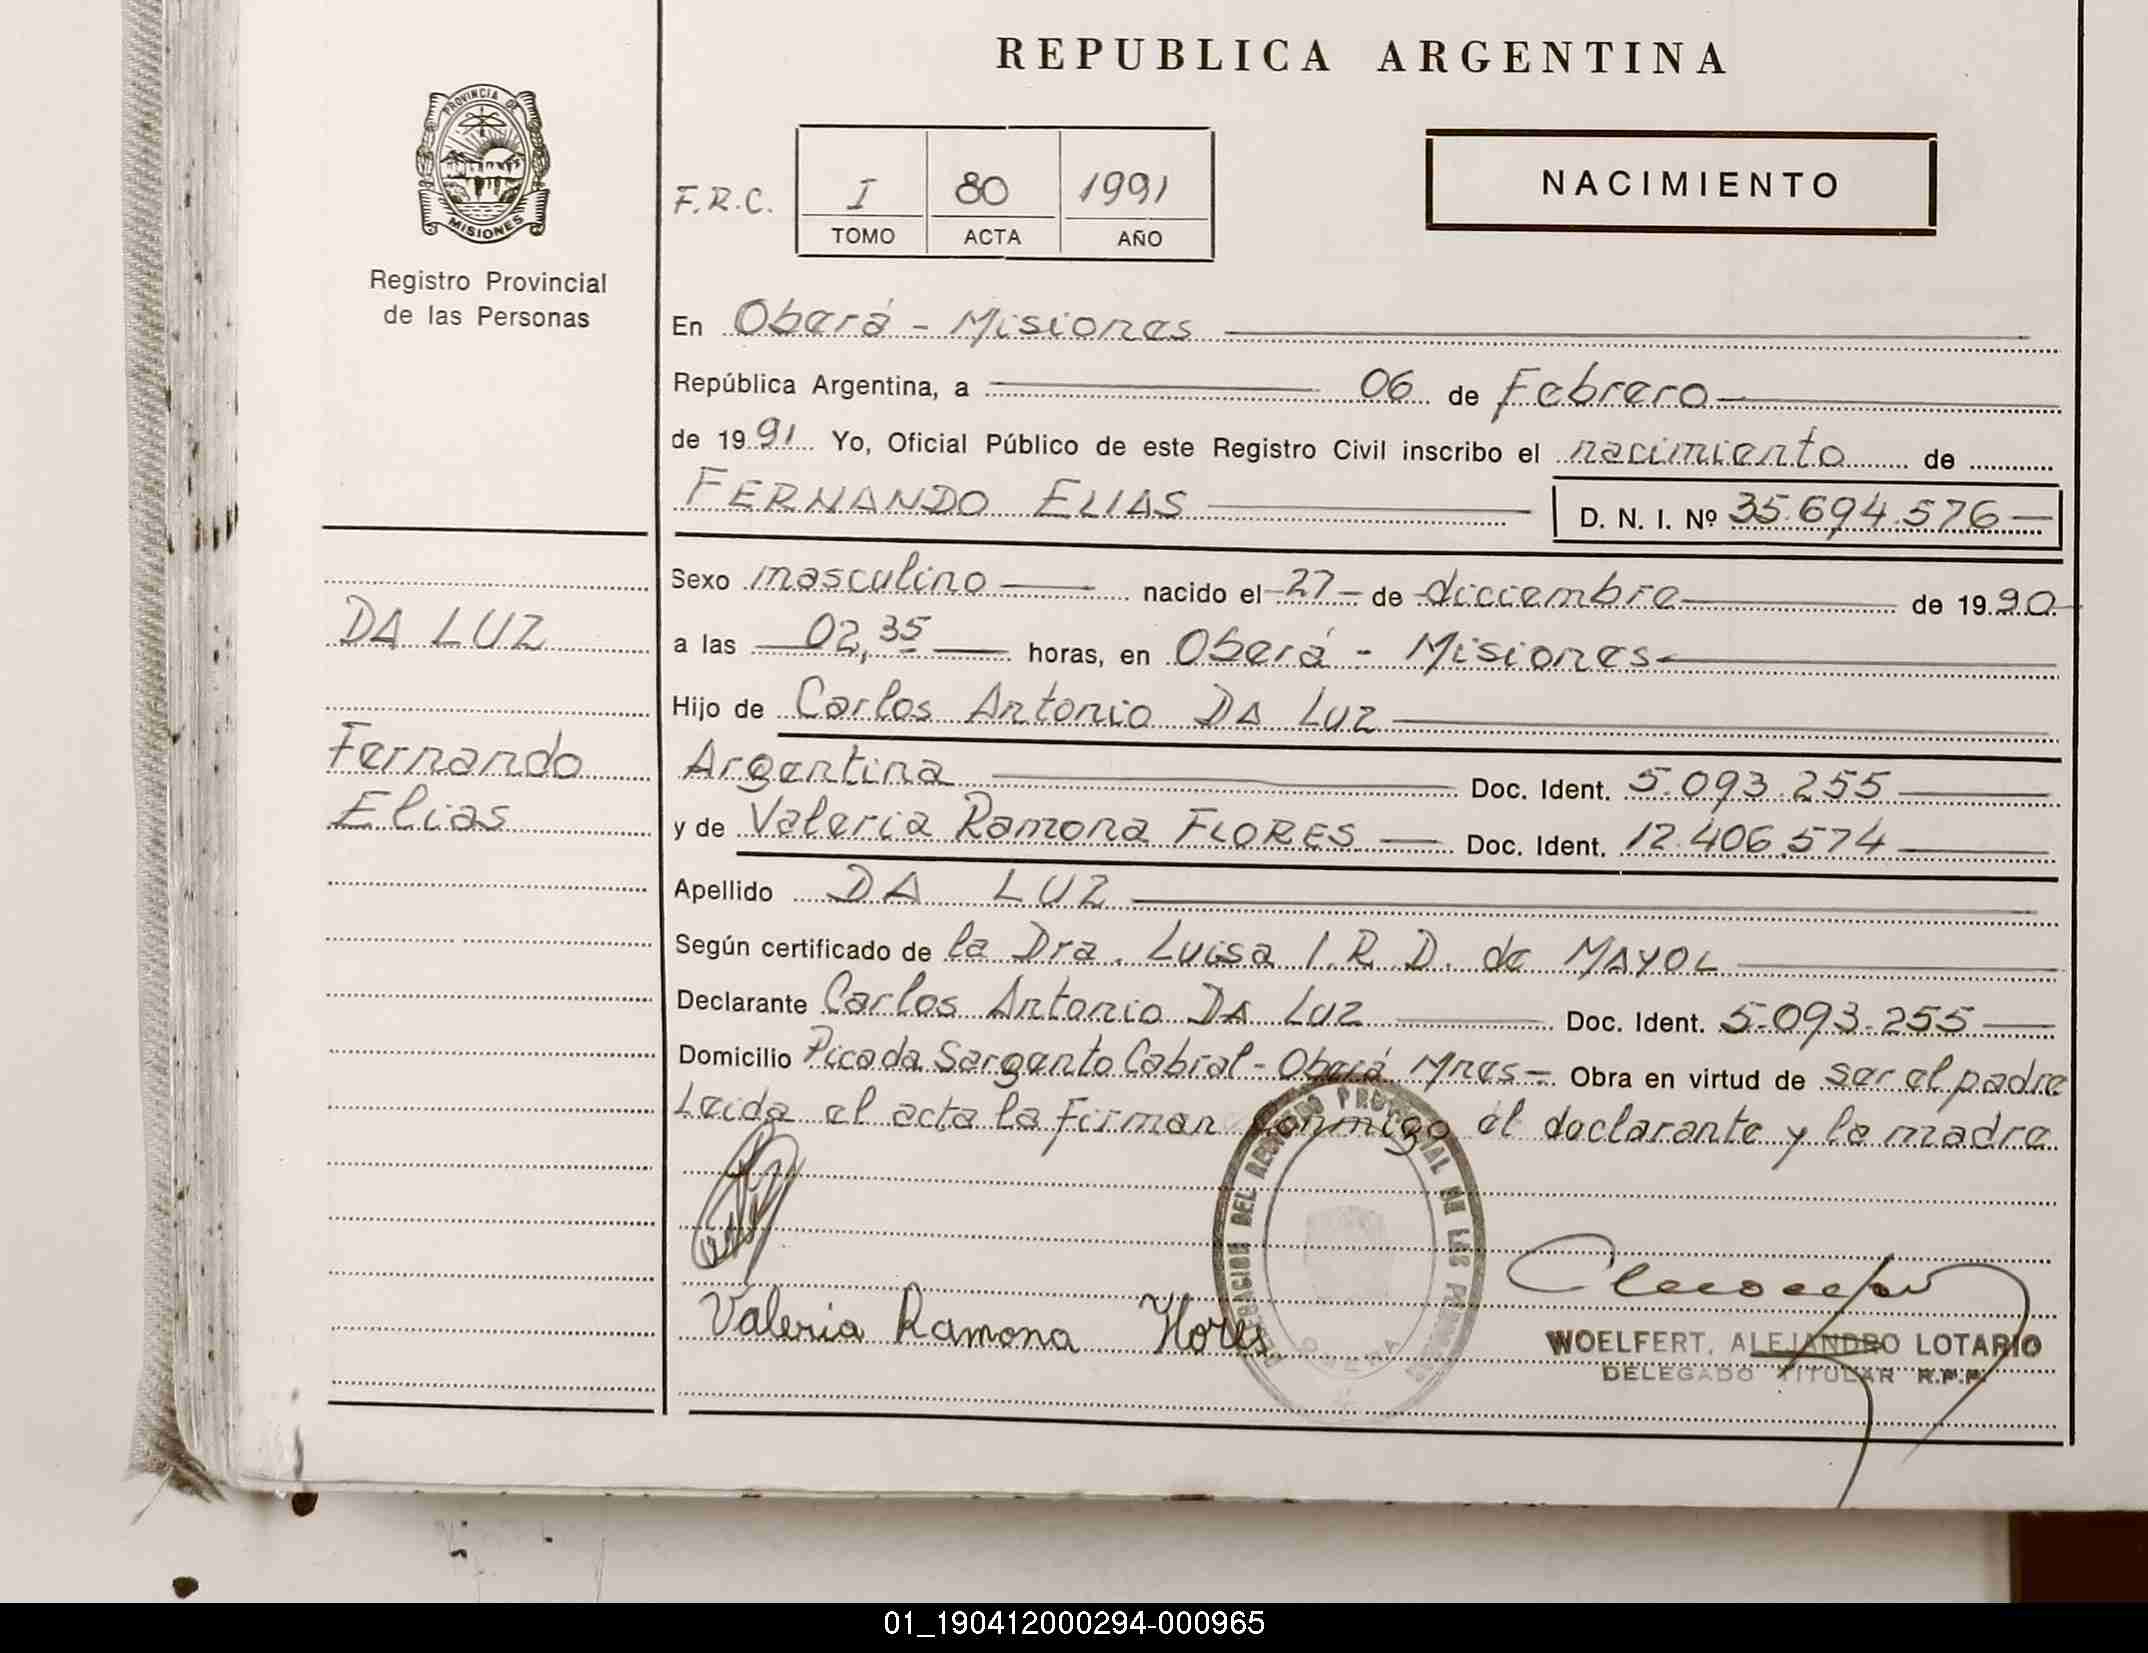 REPUBLICA ARGENTINA
PROVINCIA DE
MISIONES
Registro Provincial
de las Personas
F.R.C.
I 80 1991
TOMO ACTA AÑO
NACIMIENTO
En Oberá - Misiones
República Argentina, a 06 de Febrero
de 1991 Yo, Oficial Público de este Registro Civil inscribo el nacimiento de
FERNANDO ELIAS D. N. I. Nº 35.694.576
DA LUZ
Fernando
Elias
Sexo masculino nacido el 27 de diciembre de 1990
a las 02,35 horas, en Oberá - Misiones
Hijo de Carlos Antonio DA LUZ
Argentina Doc. Ident. 5.093.255
y de Valeria Ramona FLORES Doc. Ident. 12.406.574
Apellido DA LUZ
Según certificado de la Dra. Luisa I. R. D. de MAYOL
Declarante Carlos Antonio DA LUZ Doc. Ident. 5.093.255
Domicilio Picada Sargento Cabral - Oberá Mnes - Obra en virtud de ser el padre
Leida el acta la firman conmigo el declarante y la madre
DEL REGISTRO PROVINCIAL DE LAS
OBERA
Valeria Ramona Flores
WOELFERT, ALEJANDRO LOTARIO
DELEGADO TITULAR R.P.P.
01_190412000294-000965